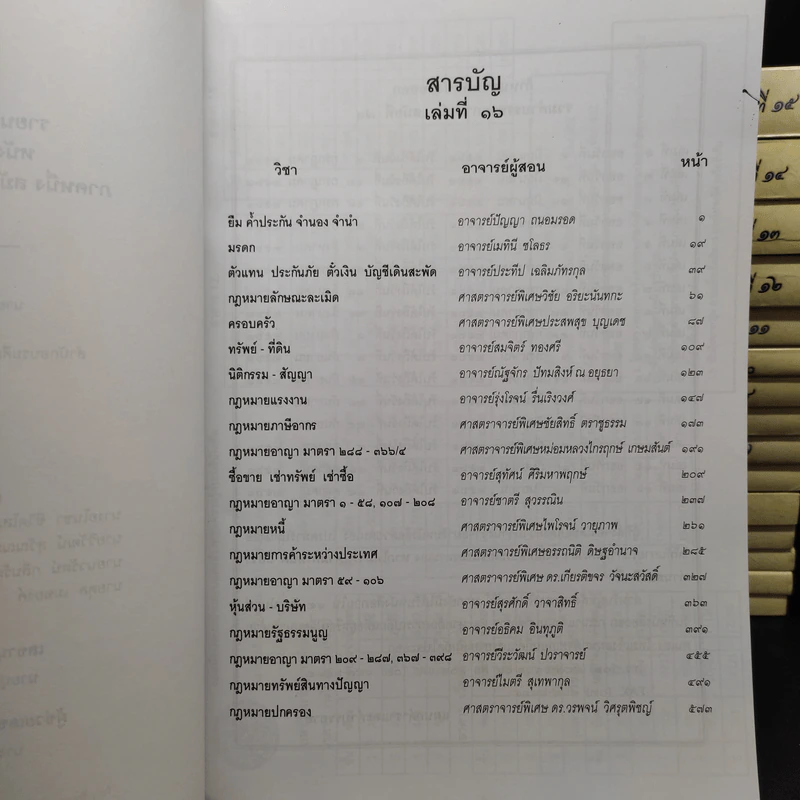 สารบัญ
เล่มที่ ๑๖
วิชา อาจารย์ผู้สอน หน้า
ยืม ค้ำประกัน จำนอง จำนำ อาจารย์ปัญญา ถนอมรอด ๑
มรดก อาจารย์เมทินี ชโลธร ๑๙
ตัวแทน ประกันภัย ตั๋วเงิน บัญชีเดินสะพัด อาจารย์ประทีป เฉลิมภัทรกุล ๓๙
กฎหมายลักษณะละเมิด ศาสตราจารย์พิเศษวิชัย อริยะนันทกะ ๖๑
ครอบครัว ศาสตราจารย์พิเศษประสพสุข บุญเดช ๘๗
ทรัพย์ - ที่ดิน อาจารย์สมจิตร์ ทองศรี ๑๐๙
นิติกรรม - สัญญา อาจารย์ณัฐจักร ปัทมสิงห์ ณ อยุธยา ๑๒๓
กฎหมายแรงงาน อาจารย์รุ่งโรจน์ รื่นเริงวงศ์ ๑๔๗
กฎหมายภาษีอากร ศาสตราจารย์พิเศษชัยสิทธิ์ ตราชูธรรม ๑๗๓
กฎหมายอาญา มาตรา ๒๘๘ - ๓๖๖/๔ ศาสตราจารย์พิเศษหม่อมหลวงไกรฤกษ์ เกษมสันต์ ๑๙๑
ซื้อขาย เช่าทรัพย์ เช่าซื้อ อาจารย์สุทัศน์ ศิริมหาพฤกษ์ ๒๐๙
กฎหมายอาญา มาตรา ๑ - ๕๘, ๑๐๗ - ๒๐๘ อาจารย์ชาตรี สุวรรณิน ๒๓๗
กฎหมายหนี้ ศาสตราจารย์พิเศษไพโรจน์ วายุภาพ ๒๖๑
กฎหมายการค้าระหว่างประเทศ ศาสตราจารย์พิเศษอรรถนิติ ดิษฐอำนาจ ๒๘๕
กฎหมายอาญา มาตรา ๕๙ - ๑๐๖ ศาสตราจารย์พิเศษ ดร.เกียรติขจร วัจนะสวัสดิ์ ๓๒๗
หุ้นส่วน - บริษัท อาจารย์สุรศักดิ์ วาจาสิทธิ์ ๓๖๓
กฎหมายรัฐธรรมนูญ อาจารย์อธิคม อินทุภูติ ๓๙๑
กฎหมายอาญา มาตรา ๒๐๙ - ๒๘๗, ๓๖๗ - ๓๙๘ อาจารย์วีระวัฒน์ ปวราจารย์ ๔๕๕
กฎหมายทรัพย์สินทางปัญญา อาจารย์ไมตรี สุเทพากุล ๔๙๑
กฎหมายปกครอง ศาสตราจารย์พิเศษ ดร.วรพจน์ วิศรุตพิชญ์ ๕๗๓
ที่ ๑๕
ที่ ๑๔
๑๓
ที่ ๑๒
๑๑